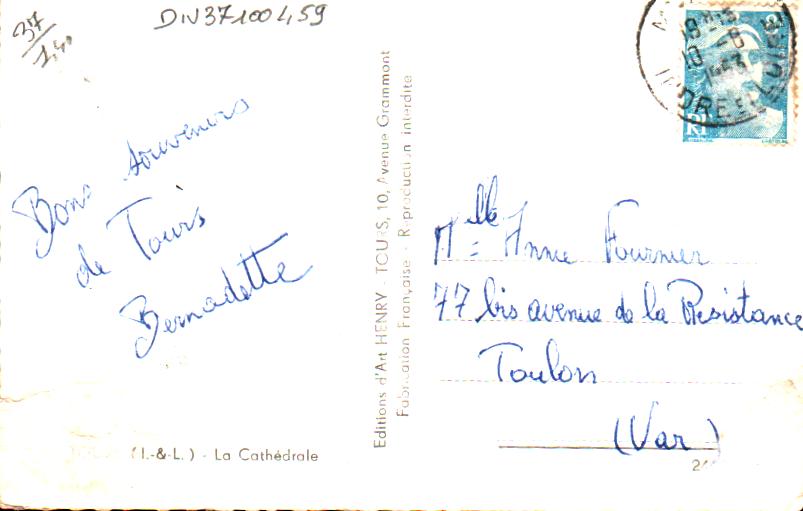 37
1,40
DIV37100459
Bons souvenirs
de Tours
Bernadette
(I.-&-L.) - La Cathédrale
Editions d'Art HENRY - TOURS, 10, Avenue Grammont
Fabrication Française - Reproduction interdite
INDRE ET LOIRE
RF
Mlle Annie Fournier
77 bis avenue de la Résistance
Toulon
(Var)